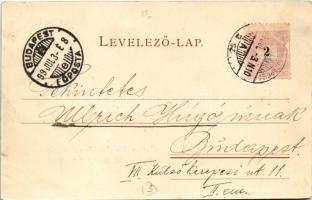 LEVELEZŐ-LAP.
BUDAPEST
99 JUL. 3. E 8
FŐPOSTA
2
Tekintetes
Ulrich Hugó úrnak
Budapest.
VII. Külső kerepesi út 11.
II. em.
3